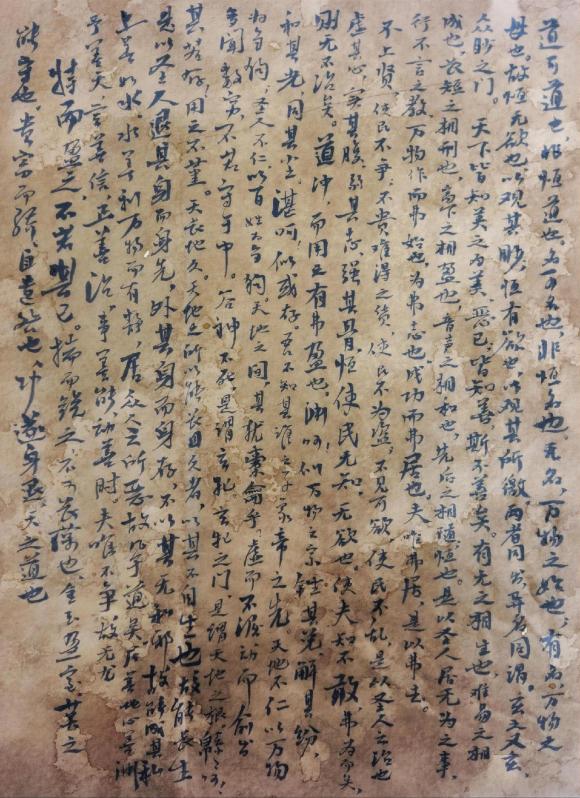 道可道也，非恒道也。名可名也，非恒名也。无名，万物之始也，有名，万物之
母也。故恒无欲也，以观其眇，恒有欲也，以观其所徼。两者同出，异名同谓。玄之又玄，
众眇之门。天下皆知美之为美，恶已，皆知善，斯不善矣。有无之相生也，难易之相
成也，长短之相刑也，高下之相盈也，音声之相和也，先后之相随恒也。是以圣人居无为之事，
行不言之教，万物作而弗始也，为弗志也，成功而弗居也。夫唯弗居，是以弗去。
不上贤，使民不争，不贵难得之货，使民不为盗，不见可欲，使民不乱。是以圣人之治也
虚其心，实其腹，弱其志，强其骨，恒使民无知，无欲也。使夫知不敢，弗为而矣，
则无不治矣。道冲，而用之有弗盈也，渊呵，似万物之宗。锉其兑，解其纷，
和其光，同其尘，湛呵，似或存。吾不知其谁之子，象帝之先。天地不仁，以万物
为刍狗，圣人不仁，以百姓为刍狗。天地之间，其犹橐龠乎，虚而不淈，动而俞出
多闻数穷，不若守于中。谷神不死，是谓玄牝，玄牝之门，是谓天地之根，绵绵呵，
其若存，用之不堇。天长地久，天地之所以能长且久者，以其不自生也，故能长生
是以圣人退其身而身先，外其身而身存，不以其无私邪，故能成其私
上善如水，水善利万物而有静，居众人之所恶，故几乎道矣。居善地，心善渊
予善天，言善信，正善治，事善能，动善时。夫唯不争，故无尤
持而盈之，不若其已。揣而锐之，不可长葆也，金玉盈室，莫之
能守也，贵富而骄，自遗咎也，功遂身退，天之道也